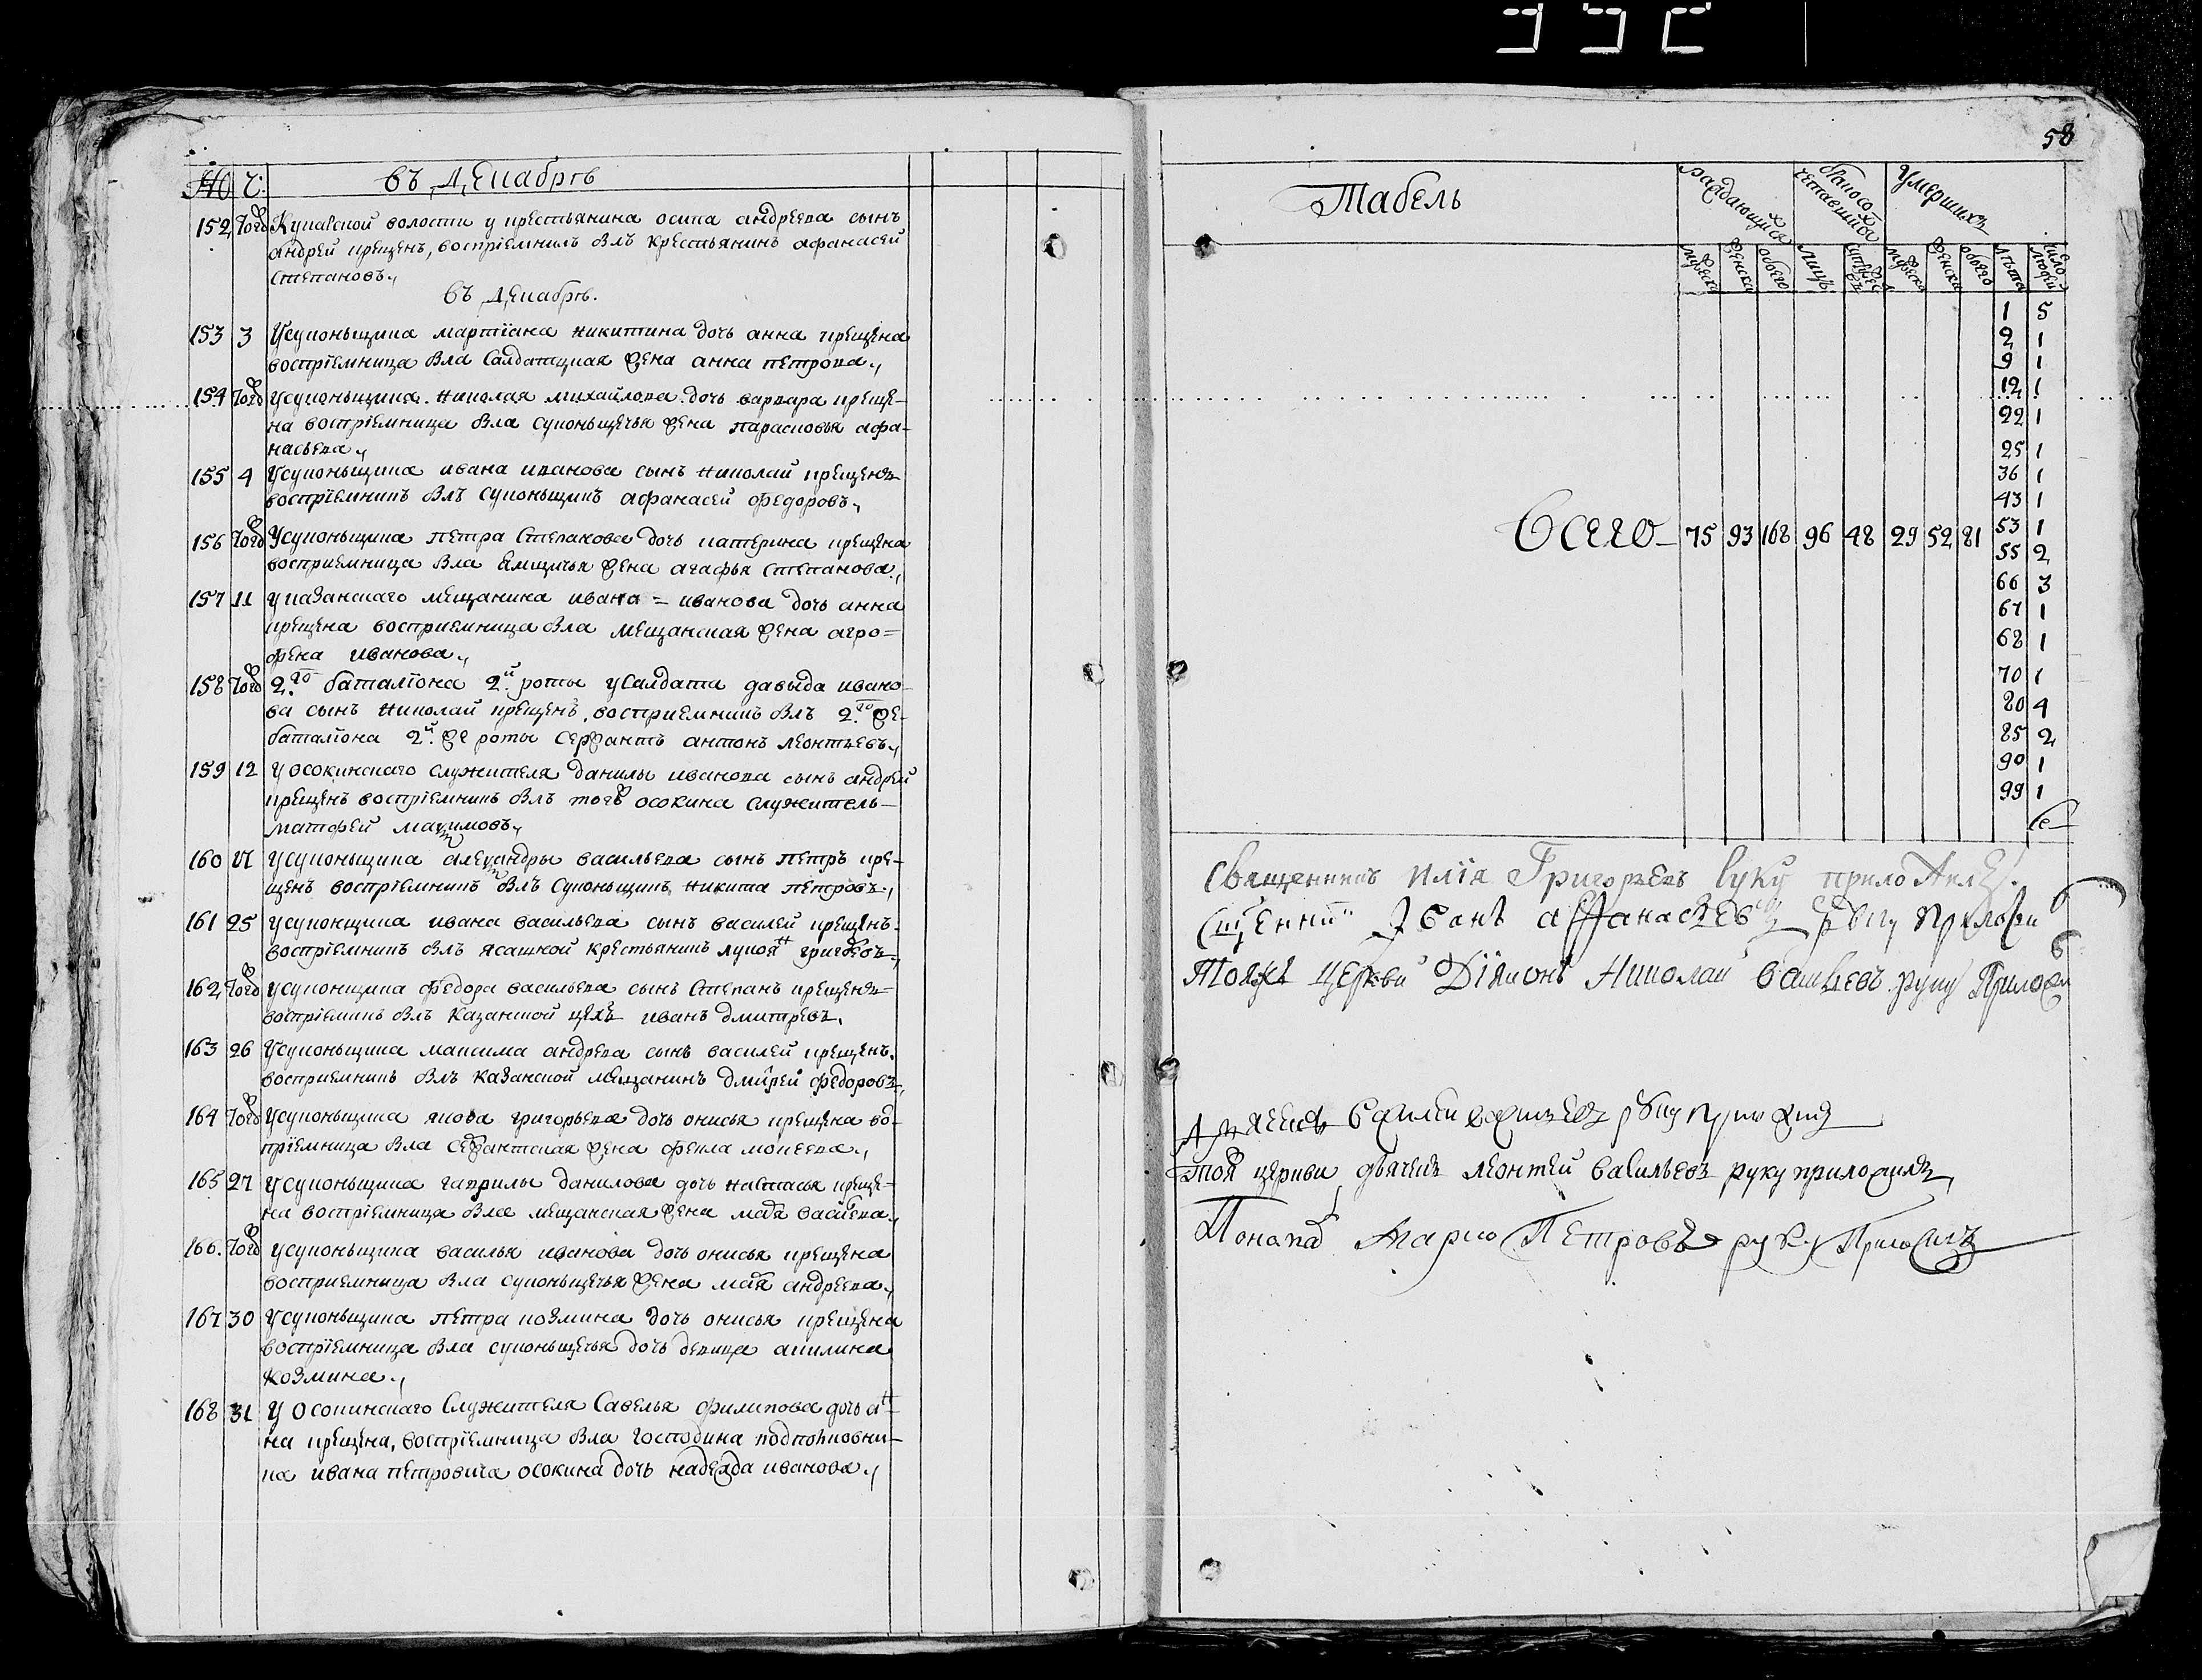 № Ч: въ Декабрѣ
152 Тогож Купаевской волости у крестьянина осипа андреева сынъ
андрей крещенъ, воспрїемникъ былъ крестьянинъ афанасей
степановъ.,
въ Декабрѣ.
153 3 У суконьщика мартїана никитина дочь анна крещена
воспрїемница была салдатцкая жена анна петрова.,
154 Тогож у суконьщика николая михайлова дочь варвара креще-
на воспрїемница была суконьщечья жена парасковья афа-
насьева.,
155 4 У суконьщика ивана иванова сынъ николай крещенъ
воспрїемникъ былъ суконьщикъ афанасей федоровъ.,
156 Тогож У суконьщика петра степанова дочь катерина крещена
восприемница была ямщичья жена агафья степанова.,
157 11 у казанскаго мещанина ивана = иванова дочь анна
крещена восприемница была мещанская жена агро=
фена иванова.,
158 Тогож 2.го баталїона 2.й роты у салдата давыда ивано-
ва сынъ николай крещенъ, восприемникъ былъ 2.го же-
баталїона 2.й же роты сержантъ антонъ леонтьевъ.,
159 12 у осокинскаго служителя данилы иванова сынъ андрей
крещенъ воспрїемникъ былъ тогож осокина служитель-
матфей максимовъ.,
160 21 у суконьщика александры васильева сынъ петръ кре-
щенъ воспрїемникъ былъ суконьщикъ никита петровъ.,
161 25 у суконщика ивана васильева сынъ василей крещенъ.
воспрїемникъ былъ ясашной крестьянинъ лукоян григорьевъ.,
162 Тогож у суконщика федора васильева сынъ степанъ крещенъ
воспрїемникъ былъ казанской цеховъ иванъ дмитревъ.
163 26 У суконьщика максима андреева сынъ василей крещенъ.
восприемникъ былъ казанской мещанинъ дмитрей федоровъ.,
164 Тогож У суконьщика якова григорьева дочь онисья крещена вос-
прїемница была сержантская жена фекла моисеева.,
165 27 У суконьщика гаврилы данилова дочь настасья креще-
на воспрїемница была мещанская жена марья васильева.,
166. Тогож у суконьщика василья иванова дочь онисья крещена
восприемница была суконьщечья жена марья андреева.,
167 30 У суконьщика петра козмина дочь онисья крещена
воспрїемница была суконьщечья дочь девица акилина
козмина.,
168 31 У осокинскаго служителя савелья филипова дочь ан-
на крещена, воспрїемница была господина подполковни-
ка ивана петровича осокина дочь надежда иванова.,
58
Табель
раждающихся бракосочетавшихся Умершихъ
мужеска женска обоего лицъ супружествъ мужеска женска обоего лѣта число людей
1 5
2 1
9 1
12 1
22 1
25 1
36 1
43 1
Всего- 75 93 168 96 48 29 52 81 53 1
55 2
66 3
67 1
68 1
70 1
80 4
85 2
90 1
99 1
Священникъ Илїя Григорьевъ руку приложилъ.
Сщенникъ Іванъ Аффанасьевъ руку приложи
Тояже церкви Дїяконъ Николай Васильевъ руку Приложил
Дьячекъ Василей Васильевъ руку приложилъ
той церкви дьячекъ леонтей васильевъ руку приложилъ
Понамарь Марко Петровъ руку Приложилъ